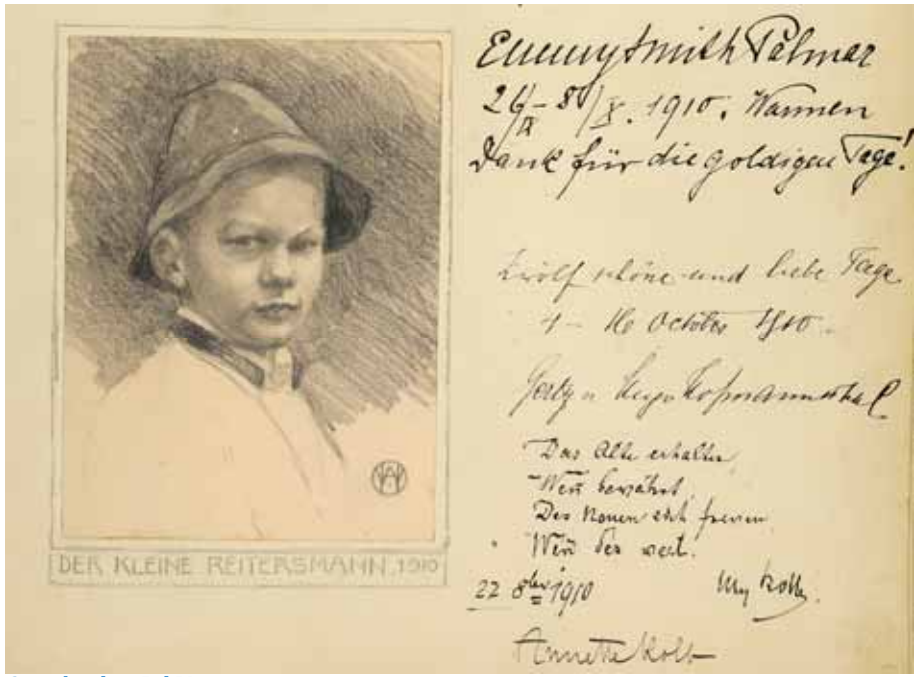 DER KLEINE REITERSMANN, 1910
Emmy Smith Palmar
24/IX – 8/X. 1910. Warmen
Dank für die goldigen Tage!
Zwölf schöne und liebe Tage
4 – 16 October 1910.
Gerty u Hugo Hofmannsthal
Das Alte erhalten,
Wenn bewährt,
Des Neuen sich freuen
Wenn des wert.
22 8ber 1910
Annette Kolb